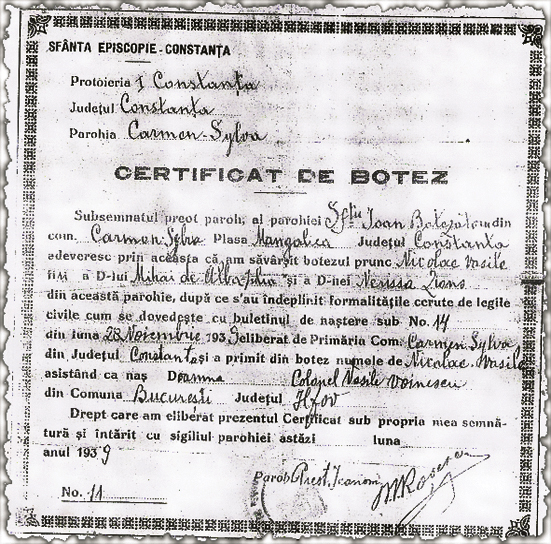 SFÂNTA EPISCOPIE-CONSTANȚA
Protoieria I Constanța
Județul Constanța
Parohia Carmen-Sylva
CERTIFICAT DE BOTEZ
Subsemnatul preot paroh, al parohiei Sftu Ioan Botezătorul din
com. Carmen Sylva Plasa Mangalia Județul Constanța
adeveresc prin aceasta că am săvârșit botezul prunc Nicolae Vasile
fiu a D-lui Mihai de și a D-nei Nerissa
din această parohie, după ce s'au îndeplinit formalitățile cerute de legile
civile cum se dovedește cu buletinul de naștere sub No. 14
din luna 28 Noiembrie 1939 eliberat de Primăria Com. Carmen Sylva
din Județul Constanța și a primit din botez numele de Nicolae Vasile
asistând ca naș Doamna Colonel Vasile Voinescu
din Comuna București Județul Ilfov
Drept care am eliberat prezentul Certificat sub propria mea semnă-
tură și întărit cu sigiliul parohiei astăzi luna
anul 1939
Paroh Preot
No. 11